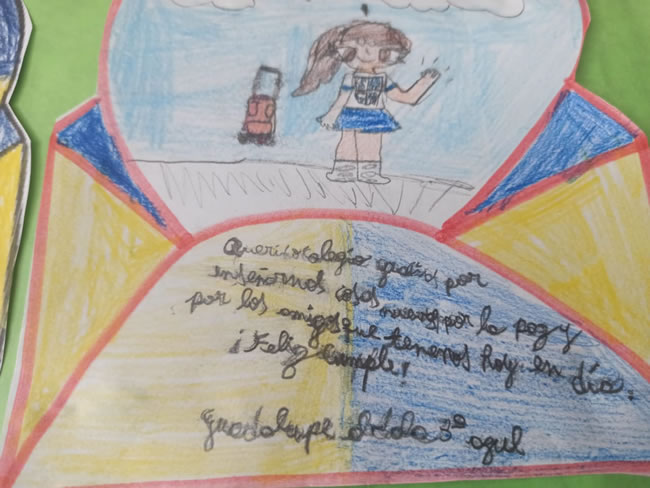 Querido colegio gracias por
enseñarnos cosas nuevas por la paz y
por los amigos que tenemos hoy en día.
¡Feliz Cumple!
Guadalupe 3º azul